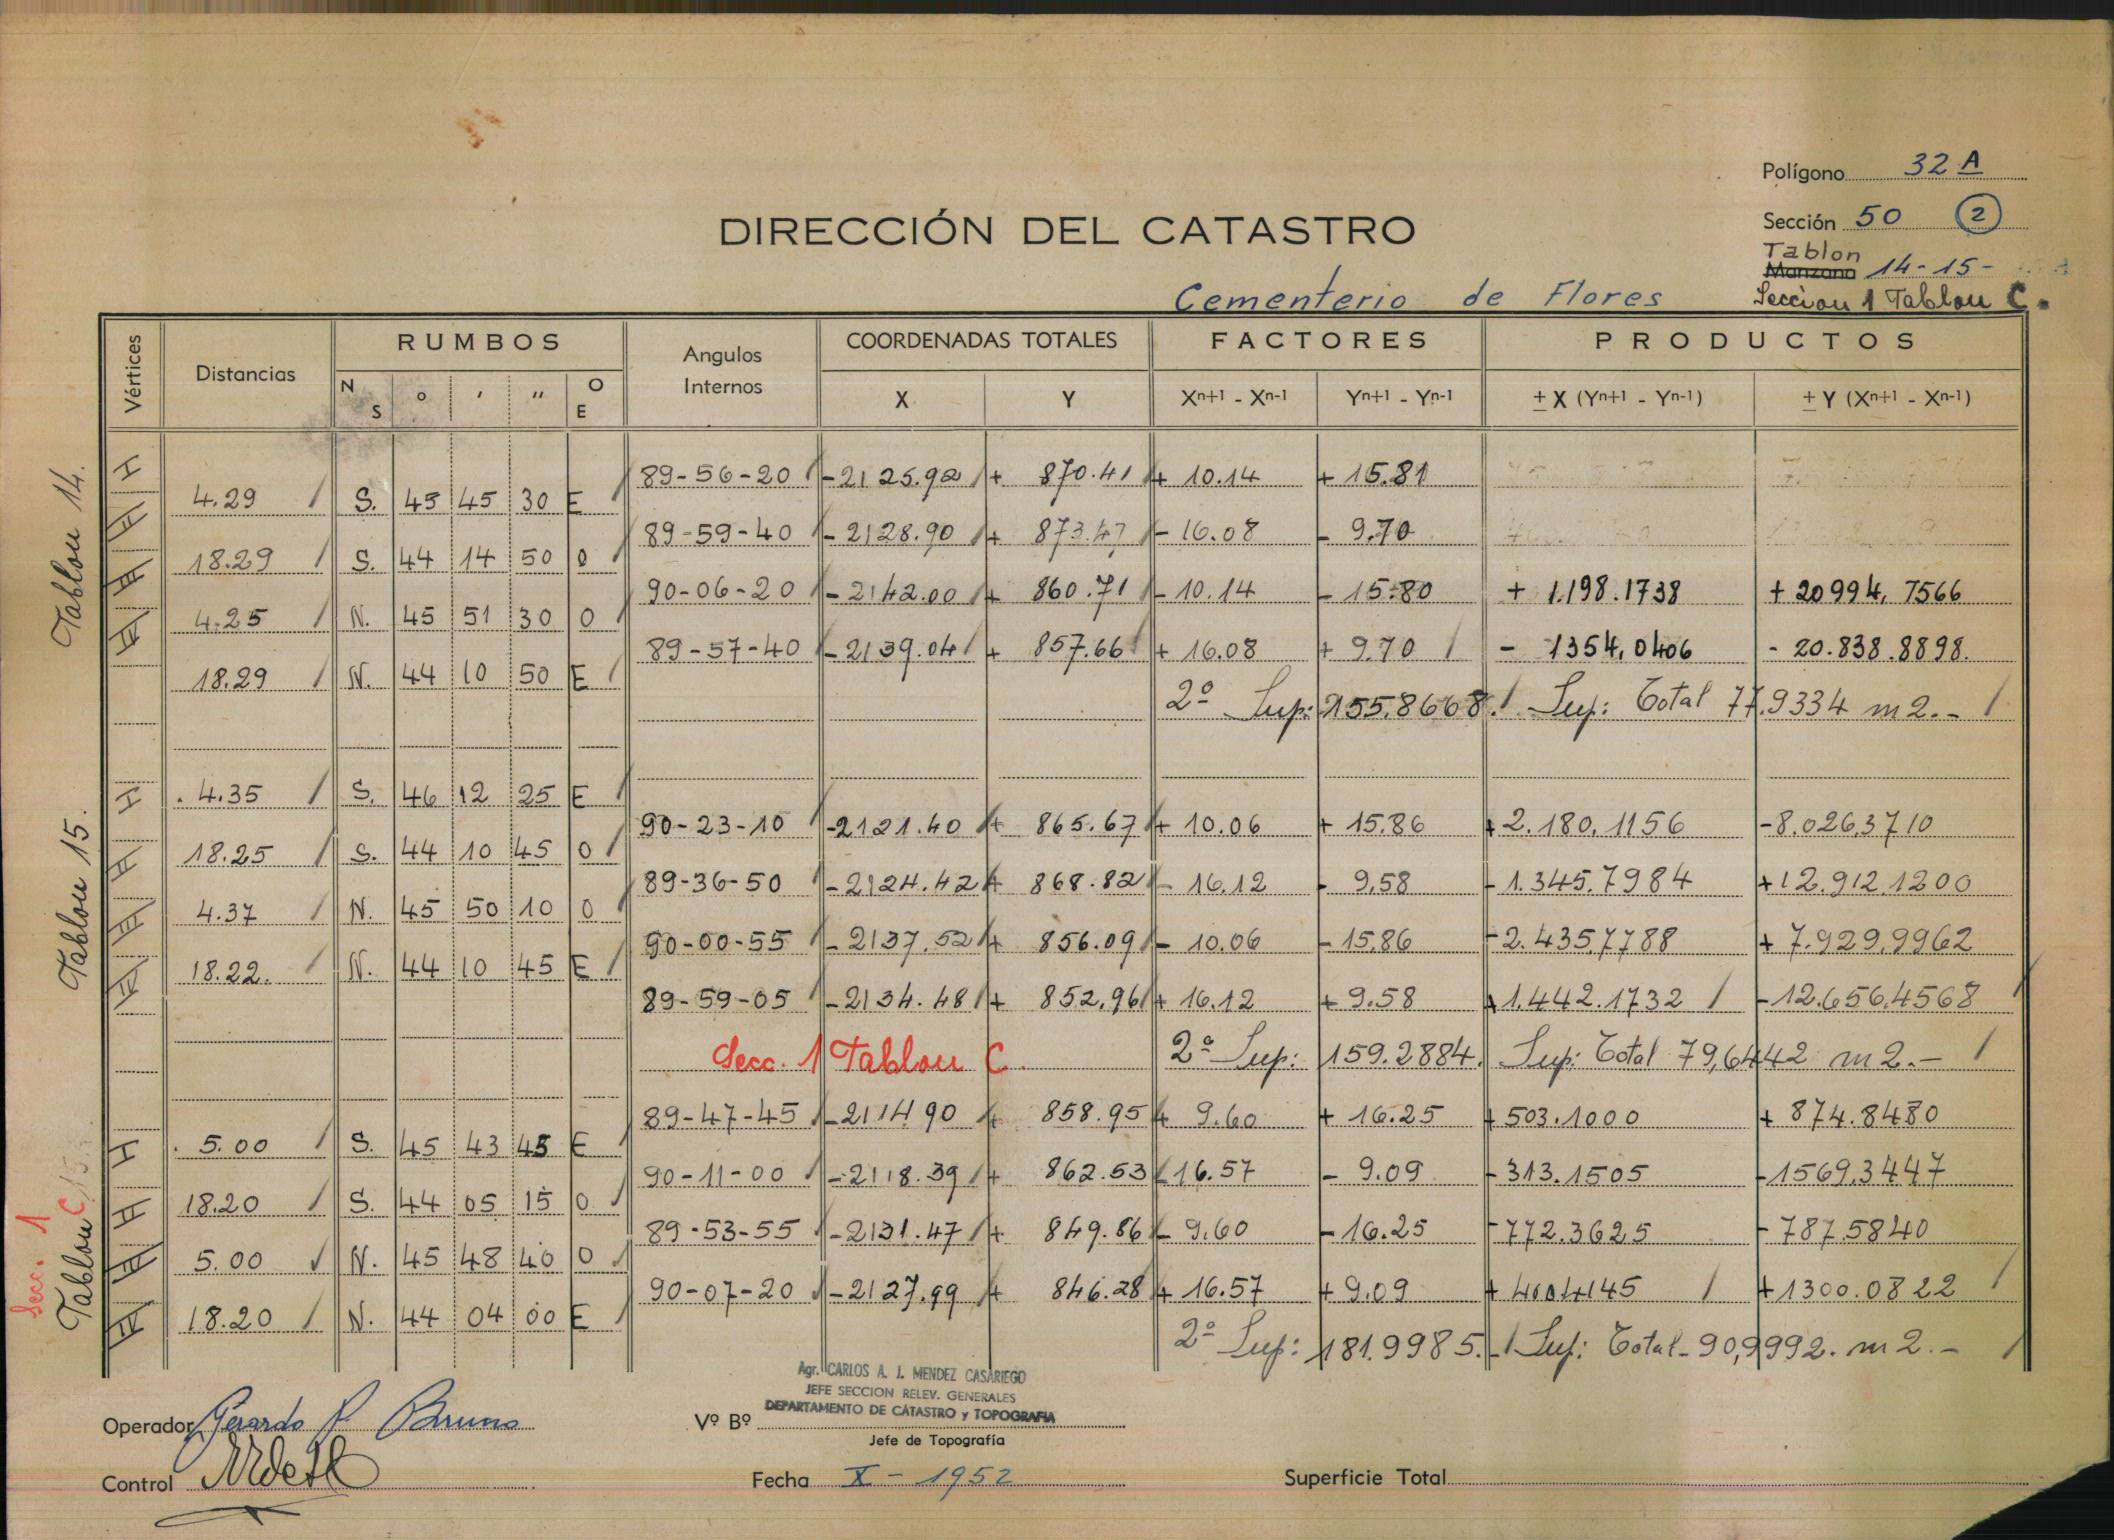 Polígono 32 A
Sección 50 2
Tablon
Manzana 14-15-
Seccion 1 Tablon C.
DIRECCIÓN DEL CATASTRO
Cementerio de Flores
Vértices Distancias RUMBOS Angulos Internos COORDENADAS TOTALES FACTORES PRODUCTOS
N S ° ' " O E X Y Xn+1 - Xn-1 Yn+1 - Yn-1 ± X (Yn+1 - Yn-1) ± Y (Xn+1 - Xn-1)
Tablon 14.
I 89-56-20 -2125.92 + 870.41 + 10.14 + 15.81
4.29 S. 45 45 30 E
II 89-59-40 - 2128.90 + 873.47 - 16.08 - 9.70
18.29 S. 44 14 50 O
III 90-06-20 - 2142.00 + 860.71 - 10.14 - 15.80 + 1.198.1738 + 20994,7566
4.25 N. 45 51 30 O
IV 89-57-40 - 2139.04 + 857.66 + 16.08 + 9.70 - 1354,0406 - 20.838.8898.
18.29 N. 44 10 50 E
2º Sup: 155.8668. Sup: Total 77.9334 m2.-
Tablon 15.
I 4.35 S. 46 12 25 E
90-23-10 -2121.40 + 865.67 + 10.06 + 15.86 + 2.180,1156 -8.026,3710
II 18.25 S. 44 10 45 O
89-36-50 - 2124.42 + 868.82 - 16.12 - 9.58 - 1.345.7984 +12.912.1200
III 4.37 N. 45 50 10 O
90-00-55 - 2137.52 + 856.09 - 10.06 - 15.86 - 2.435,7788 + 7.929,9962
IV 18.22. N. 44 10 45 E
89-59-05 - 2134.48 + 852.96 + 16.12 + 9.58 +1.442.1732 -12.656,4568
Secc. 1 Tablon C. 2º Sup: 159.2884. Sup: Total 79,6442 m2.-
Secc. 1
Tablon C
89-47-45 -2114.90 + 858.95 + 9.60 + 16.25 + 503.1000 + 874.8480
I 5.00 S. 45 43 45 E
90-11-00 -2118.39 + 862.53 - 16.57 - 9.09 - 313.1505 -1569,3447
II 18.20 S. 44 05 15 O
89-53-55 - 2131.47 + 849.86 - 9.60 - 16.25 - 772.3625 - 787.5840
III 5.00 N. 45 48 40 O
90-07-20 - 2127.99 + 846.28 + 16.57 + 9.09 + 400.4145 +1300.0822
IV 18.20 N. 44 04 00 E
2º Sup: 181.9985.- Sup: Total- 90,9992. m2.-
Agr. CARLOS A. J. MENDEZ CASARIEGO
JEFE SECCION RELEV. GENERALES
DEPARTAMENTO DE CATASTRO y TOPOGRAFIA
Operador Gerardo P. Bruno Vº Bº
Jefe de Topografía
Control Fecha X - 1952 Superficie Total